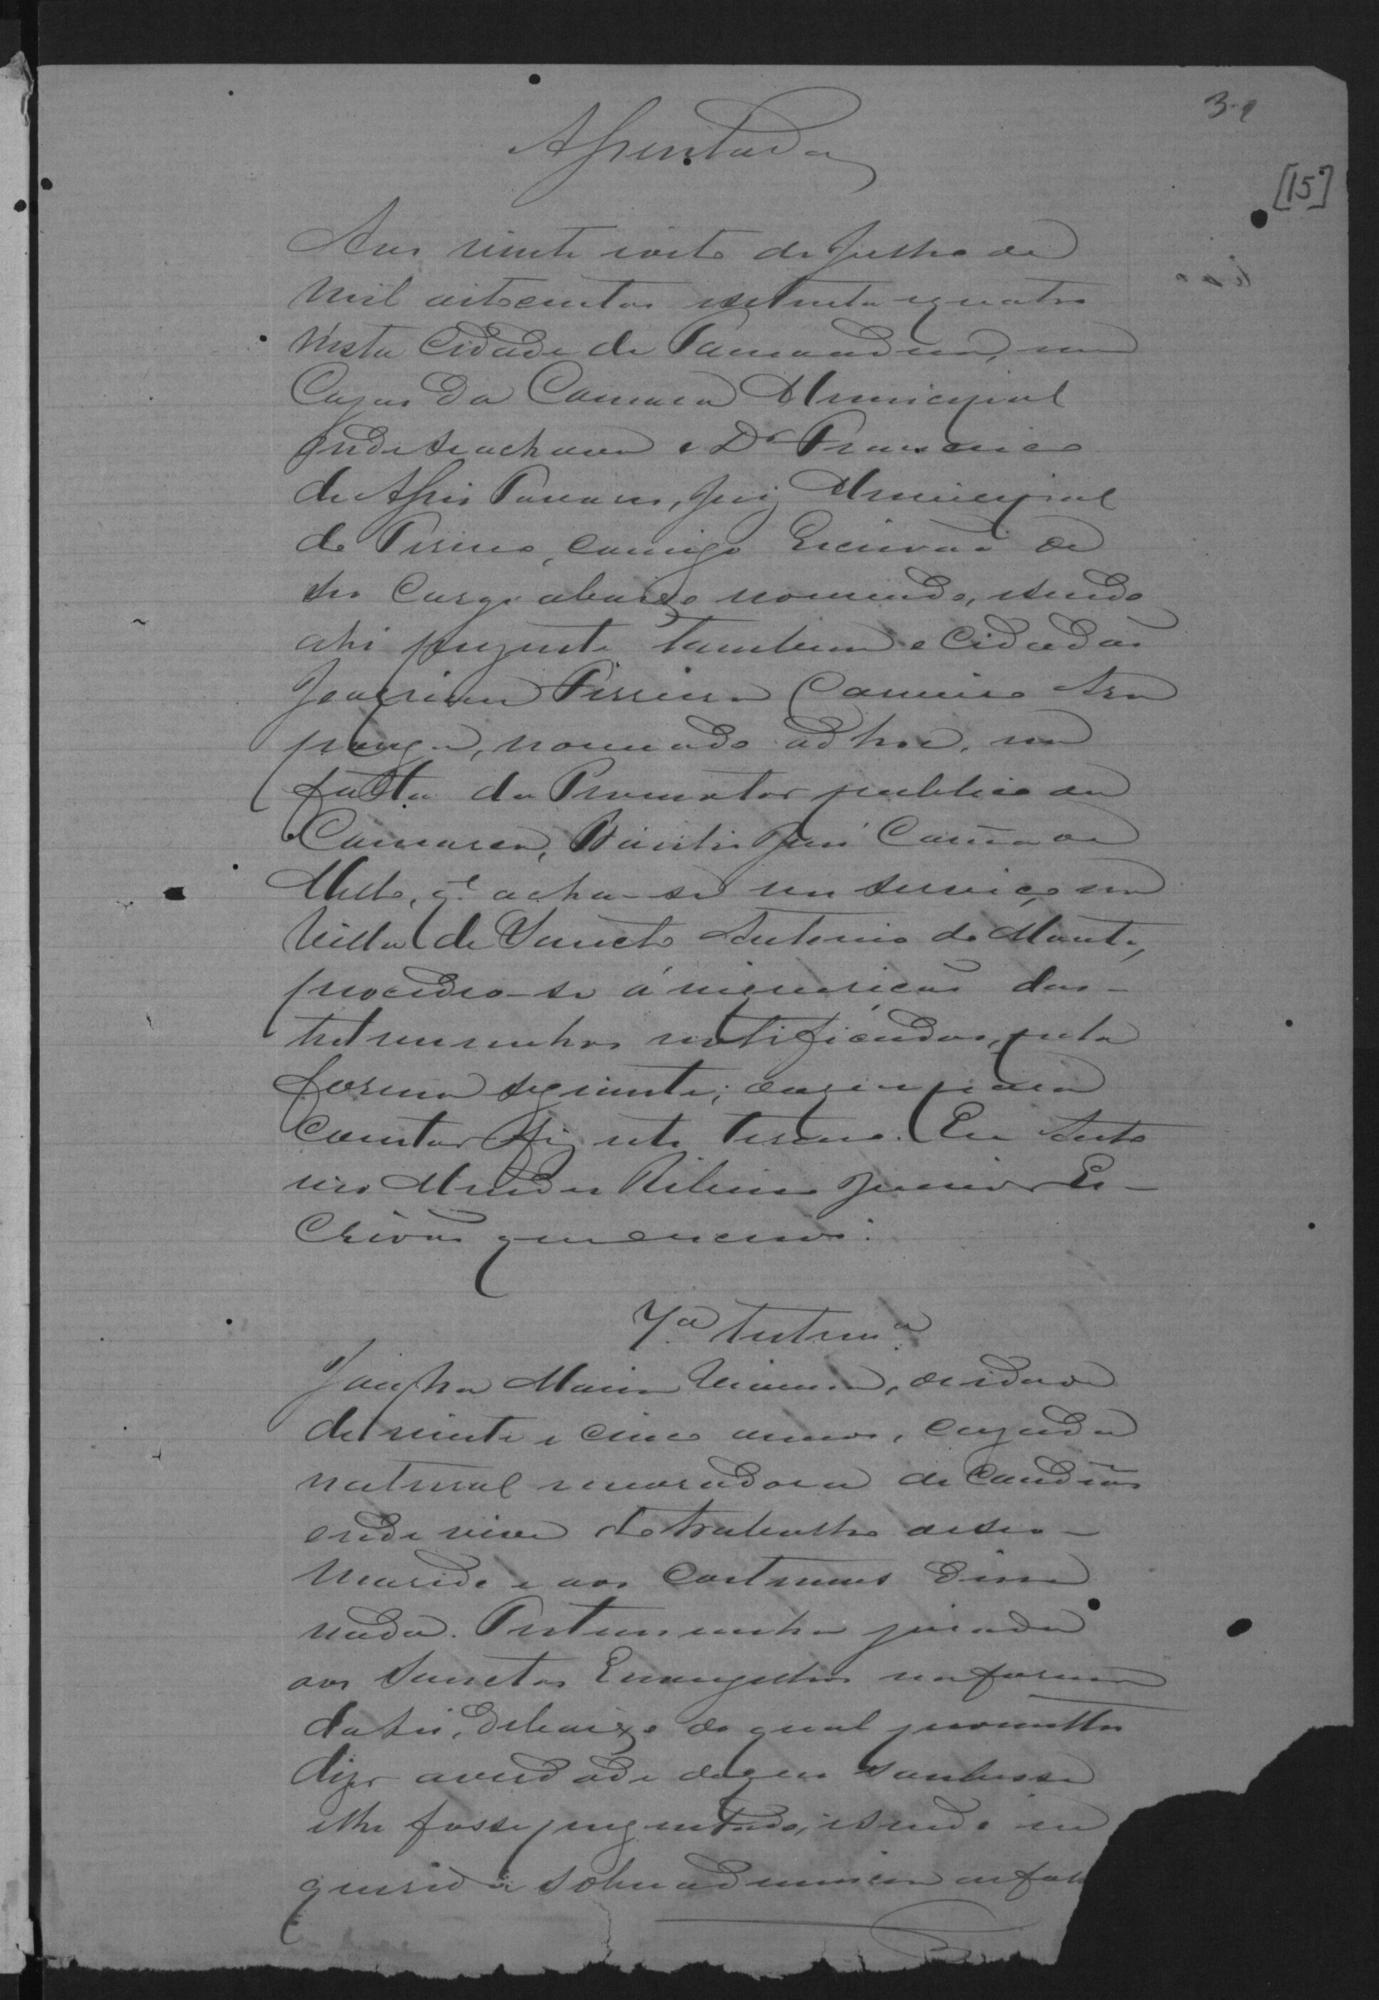 Assentada
[15]
Aos vinte e oito de Julho de
mil oitocentos setenta e quatro
nesta Cidade de Tamanduá, em
Casas da Camara Municipal
onde se achava o Dr. Francisco
de Assis Tavares, Juiz Municipal
do Termo, comigo Escrivão de
seu Cargo abaixo nomeado, sendo
ahi prezente tambem o Cidadão
Ferreira Carneiro
nomeado ad hoc, na
falta do Promotor publico da
Comarca, José Corrêa de
Mello, q.e acha-se em serviço na
Villa de Sancto Antonio do Monte,
procedeo-se á inquirição das
testemunhas notificadas, pela
forma seguinte; do que para
constar fiz este termo. Eu Anto
nio Mendes Ribeiro Junior Es-
crivão que escrevi.
7.a testem.a
Maria de idade
de vinte e cinco annos, cazada
natural e moradora de Candêas
onde vive do trabalho de seo
marido e aos costumes disse
nada. Testemunha jurada
aos Sanctos Evangelhos na forma
da Lei, debaixo do qual prometteo
dizer a verdade do que soubesse
e lhe fosse perguntado, e sendo in
querida sobre a denuncia de fo